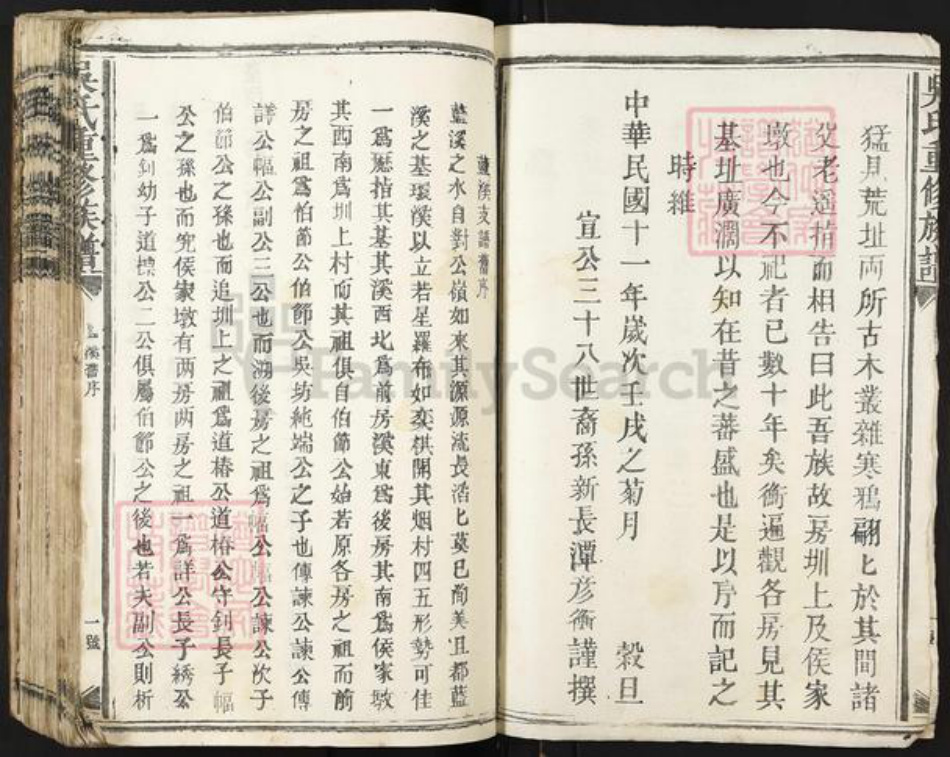 吳氏重修族譜
猛見荒址兩所古木叢雜寒鴉翩匕於其間諸
父老遥指而相告曰此吾族故房圳上及侯家
墩也今不祀者已數十年矣衡遍觀各房見其
基址廣濶以知在昔之蕃盛也是以序而記之
時維
中華民國十一年歲次壬戌之菊月 穀旦
宣公三十八世裔孫新長潭彥衡謹撰
藍溪支譜舊序
藍溪之水自對公嶺如來其源源流長浩匕莫已洵美且都藍
溪之基環溪以立若星羅布如奕棋開其烟村四五形勢可佳
一為歷指其基其溪西北為前房溪東為後房其南為侯家墩
其西南為圳上村而其祖俱自伯節公始若原各房之祖而前
房之祖為伯節公伯節公吳坊純端公之子也傳諫公諫公傳
詳公幅公副公三公也而溯後房之祖為幅公幅公諫公次子
伯節公之孫也而追圳上之祖為道椿公道椿公守釗長子幅
公之孫也而究侯家墩有兩房兩房之祖一為詳公長子綉公
一為釗幼子道標公二公俱屬伯節公之後也若夫副公則析
吳氏重修族譜
溪舊序
一號
FamilySearch